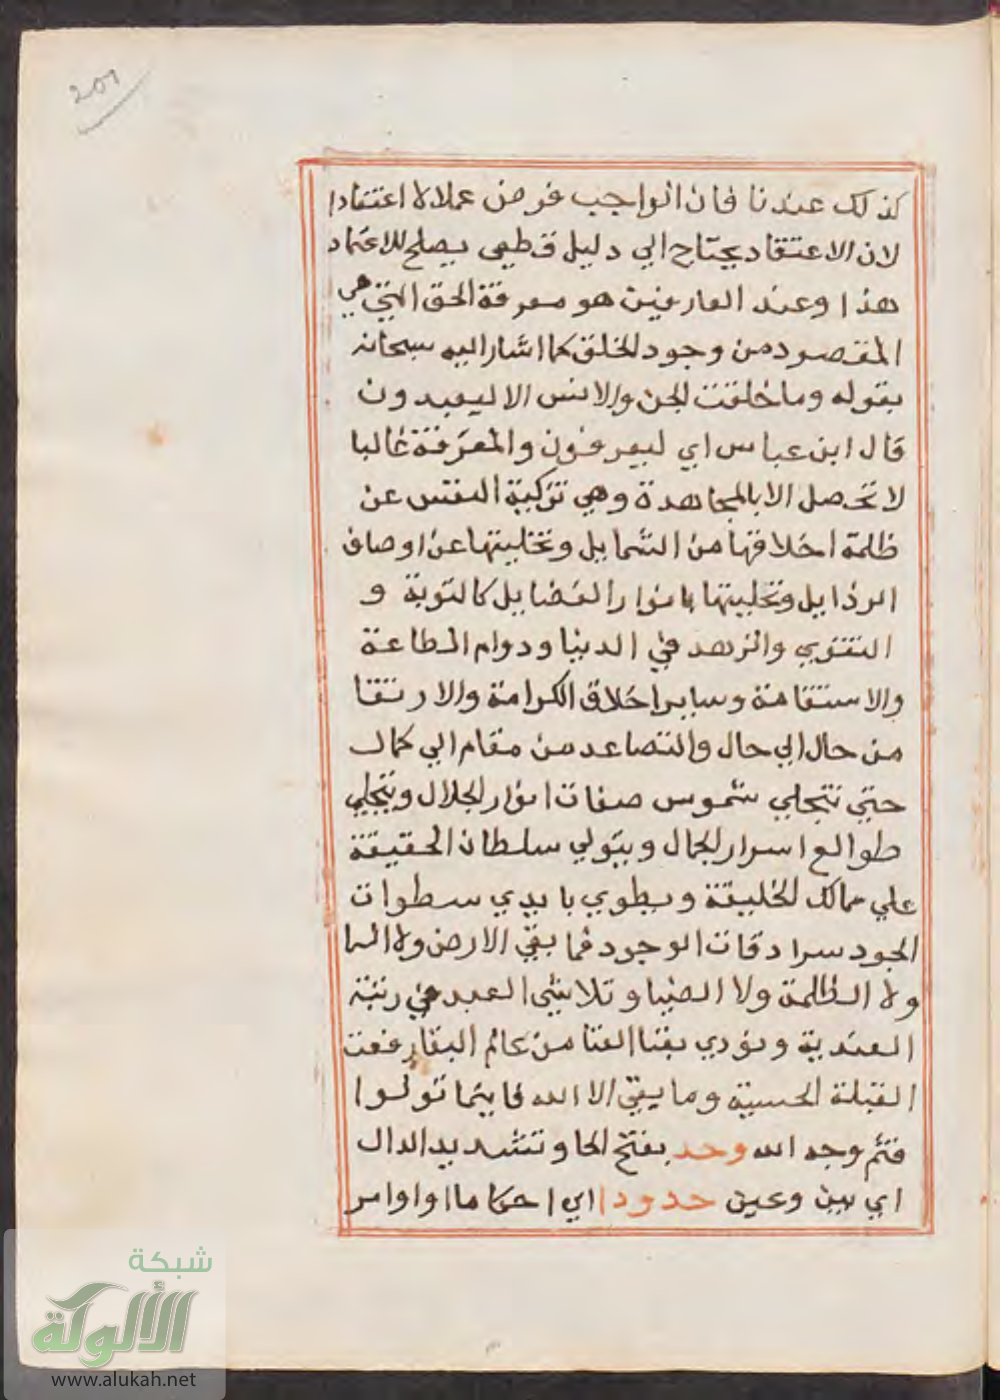 201
كذلك عندنا فان الواجب فرض عملا لا اعتقادا
لان الاعتقاد يحتاج الي دليل قطيعي يصلح للاعتماد
هذا وعند العارفين هو معرفة الحق التي هي
المقصود من وجود الخلق كما اشار اليه سبحانه
بقوله وما خلقت الجن والانس الا ليعبدون
قال ابن عباس اي ليعرفون والمعرفة غالبا
لا تحصل الا بالمجاهدة وهي تزكية النفس عن
ظلمة اخلاقها من الشمايل وتخليتها عن اوصاف
الرذايل وتحليتها بانوار الفضايل كالتوبة و
التقوي والزهد في الدنيا ودوام الطاعة
والاستقامة وساير اخلاق الكرامة والارتقا
من حال الي حال والتصاعد من مقام الي كمال
حتي تتجلي شموس صفات انوار الجلال ويتجلي
طوالع اسرار الجمال ويتولي سلطان الحقيقة
علي ممالك الخليقة ويطوي بايدي سطوات
الجود سرادقات الوجود فما بقي الارض ولا السما
ولا الظلمة ولا الضيا وتلاشي العبد في رتبة
العندية ونودي بفنا الفنا من عالم البقا رفعت
القبلة الحسية وما يبقي الا الله فاينما تولوا
فثم وجه الله وحد بفتح الحا وتشديد الدال
اي بين وعين حدودا اي احكاما اوامر
شبكة
الألوكة
www.alukah.net